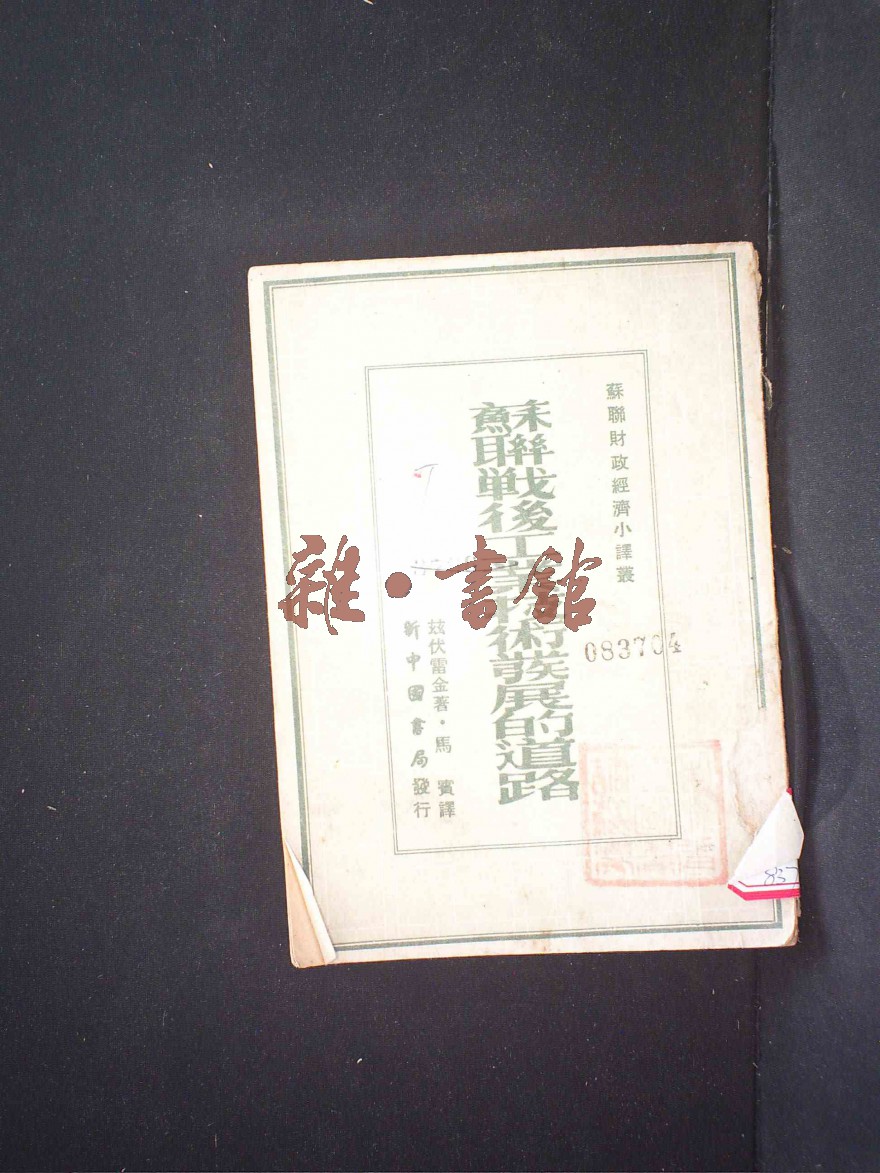 蘇聯財政經濟小譯叢
穌聯戦後工業技術發展的道路
茲伏雷金著・馬賓譯
新中國書局發行
083704
雜・書館
837